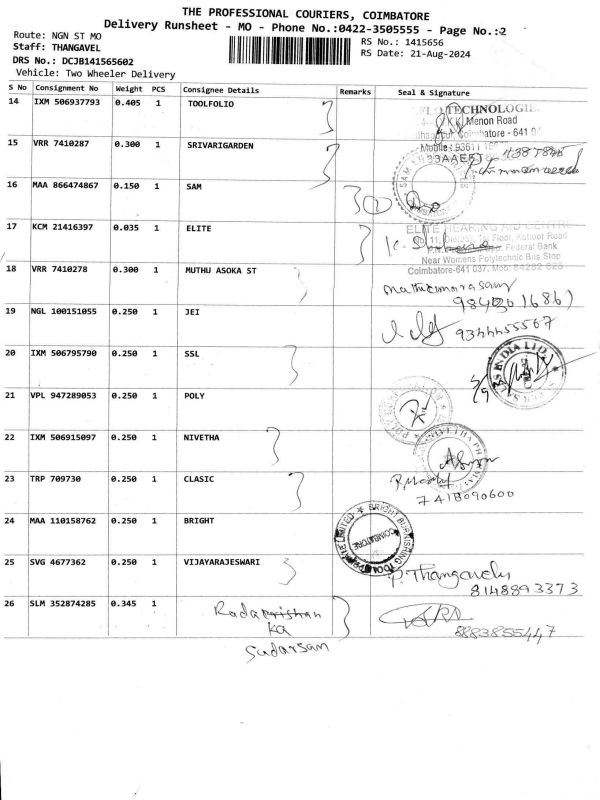 THE PROFESSIONAL COURIERS, COIMBATORE
Delivery Runsheet - MO - Phone No.:0422-3505555 - Page No.:2
Route: NGN ST MO
RS No.: 1415656
Staff: THANGAVEL
RS Date: 21-Aug-2024
DRS No.: DCJB141565602
Vehicle: Two Wheeler Delivery
S No Consignment No Weight PCS Consignee Details Remarks Seal & Signature
14 IXM 506937793 0.405 1 TOOLFOLIO
TECHNOLOGIE
Menon Road
Coimbatore - 641 0
15 VRR 7410287 0.300 1 SRIVARIGARDEN
Mobile: 93611
16 MAA 866474867 0.150 1 SAM
17 KCM 21416397 0.035 1 ELITE
ELITE HEARING AID CENTRE
Floor, Kattoor Road
Federal Bank
Near Womens Polytechnic Bus Stop
Coimbatore-641 037.
18 VRR 7410278 0.300 1 MUTHU ASOKA ST
19 NGL 100151055 0.250 1 JEI
9344455567
20 IXM 506795790 0.250 1 SSL
INDIA LTD.
21 VPL 947289053 0.250 1 POLY
22 IXM 506915097 0.250 1 NIVETHA
NIVETHA
23 TRP 709730 0.250 1 CLASIC
7418090600
24 MAA 110158762 0.250 1 BRIGHT
BRIGHT BURNISHING TOOL
LIMITED
COIMBATORE
25 SVG 4677362 0.250 1 VIJAYARAJESWARI
P. Thangavelu
8148893373
26 SLM 352874285 0.345 1 Radakrishan
ka
Sudarsam
8883855447